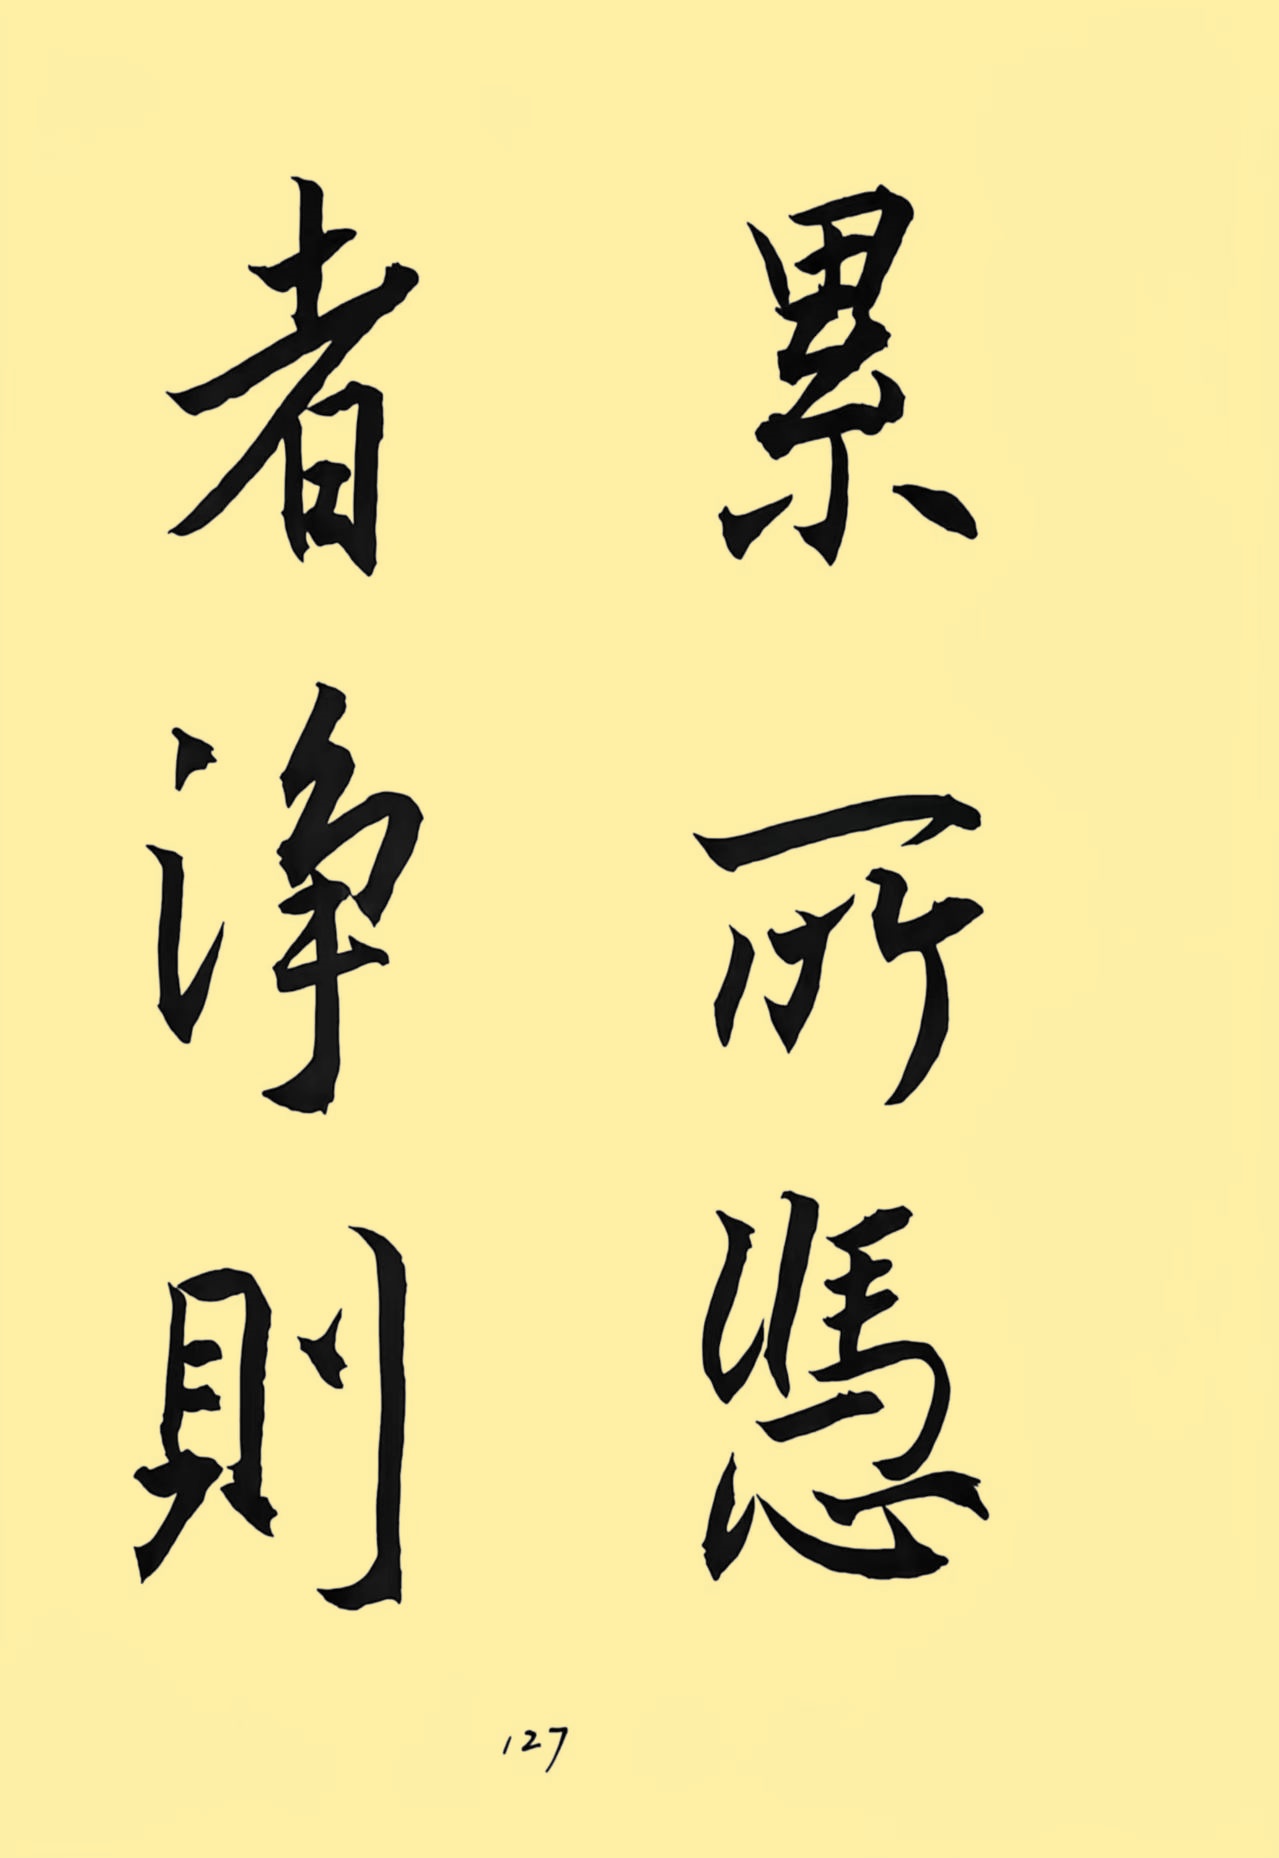 累所憑
者淨則
127